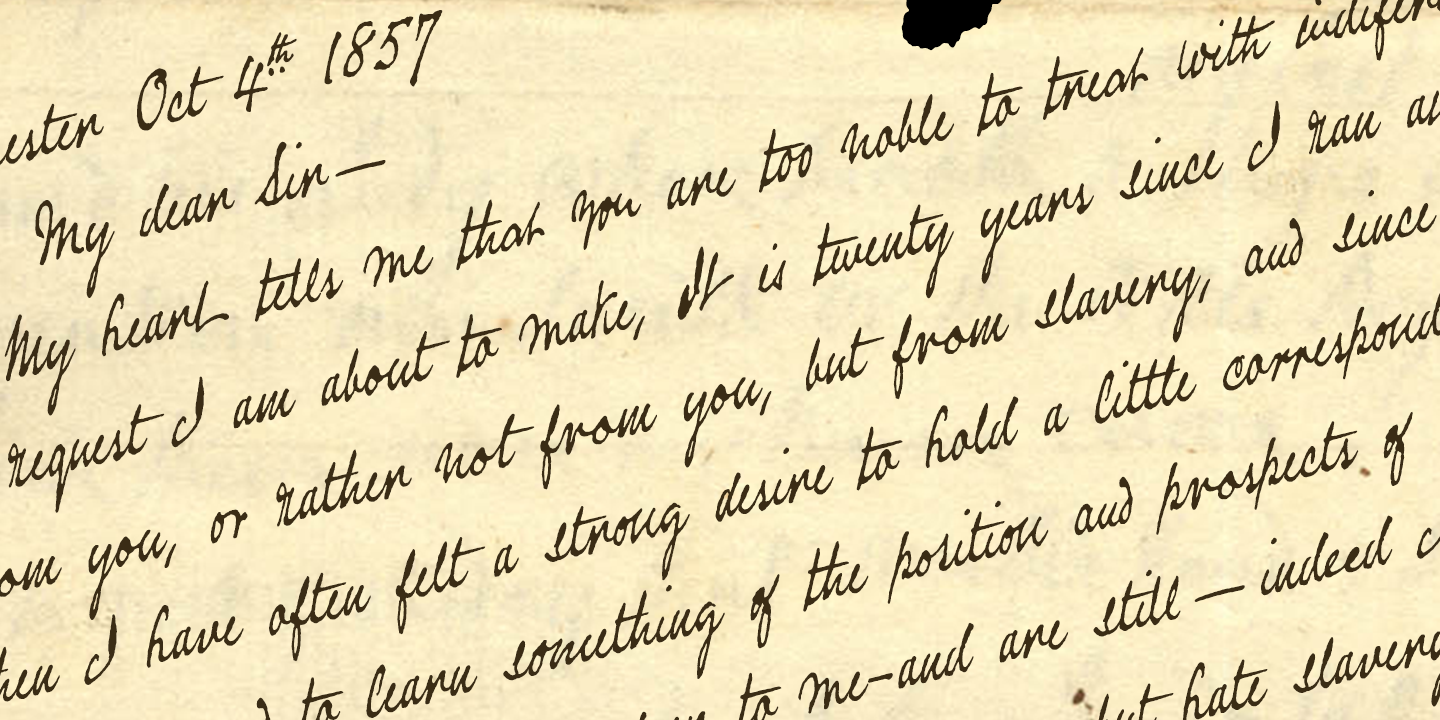 Oct 4th 1857
My dear Sir—
My heart tells me that you are too noble to treat with
request I am about to make, It is twenty years since I ran
you, or rather not from you, but from slavery, and since
I have often felt a strong desire to hold a little
to learn something of the position and prospects of
to me—and are still — indeed
but hate slavery